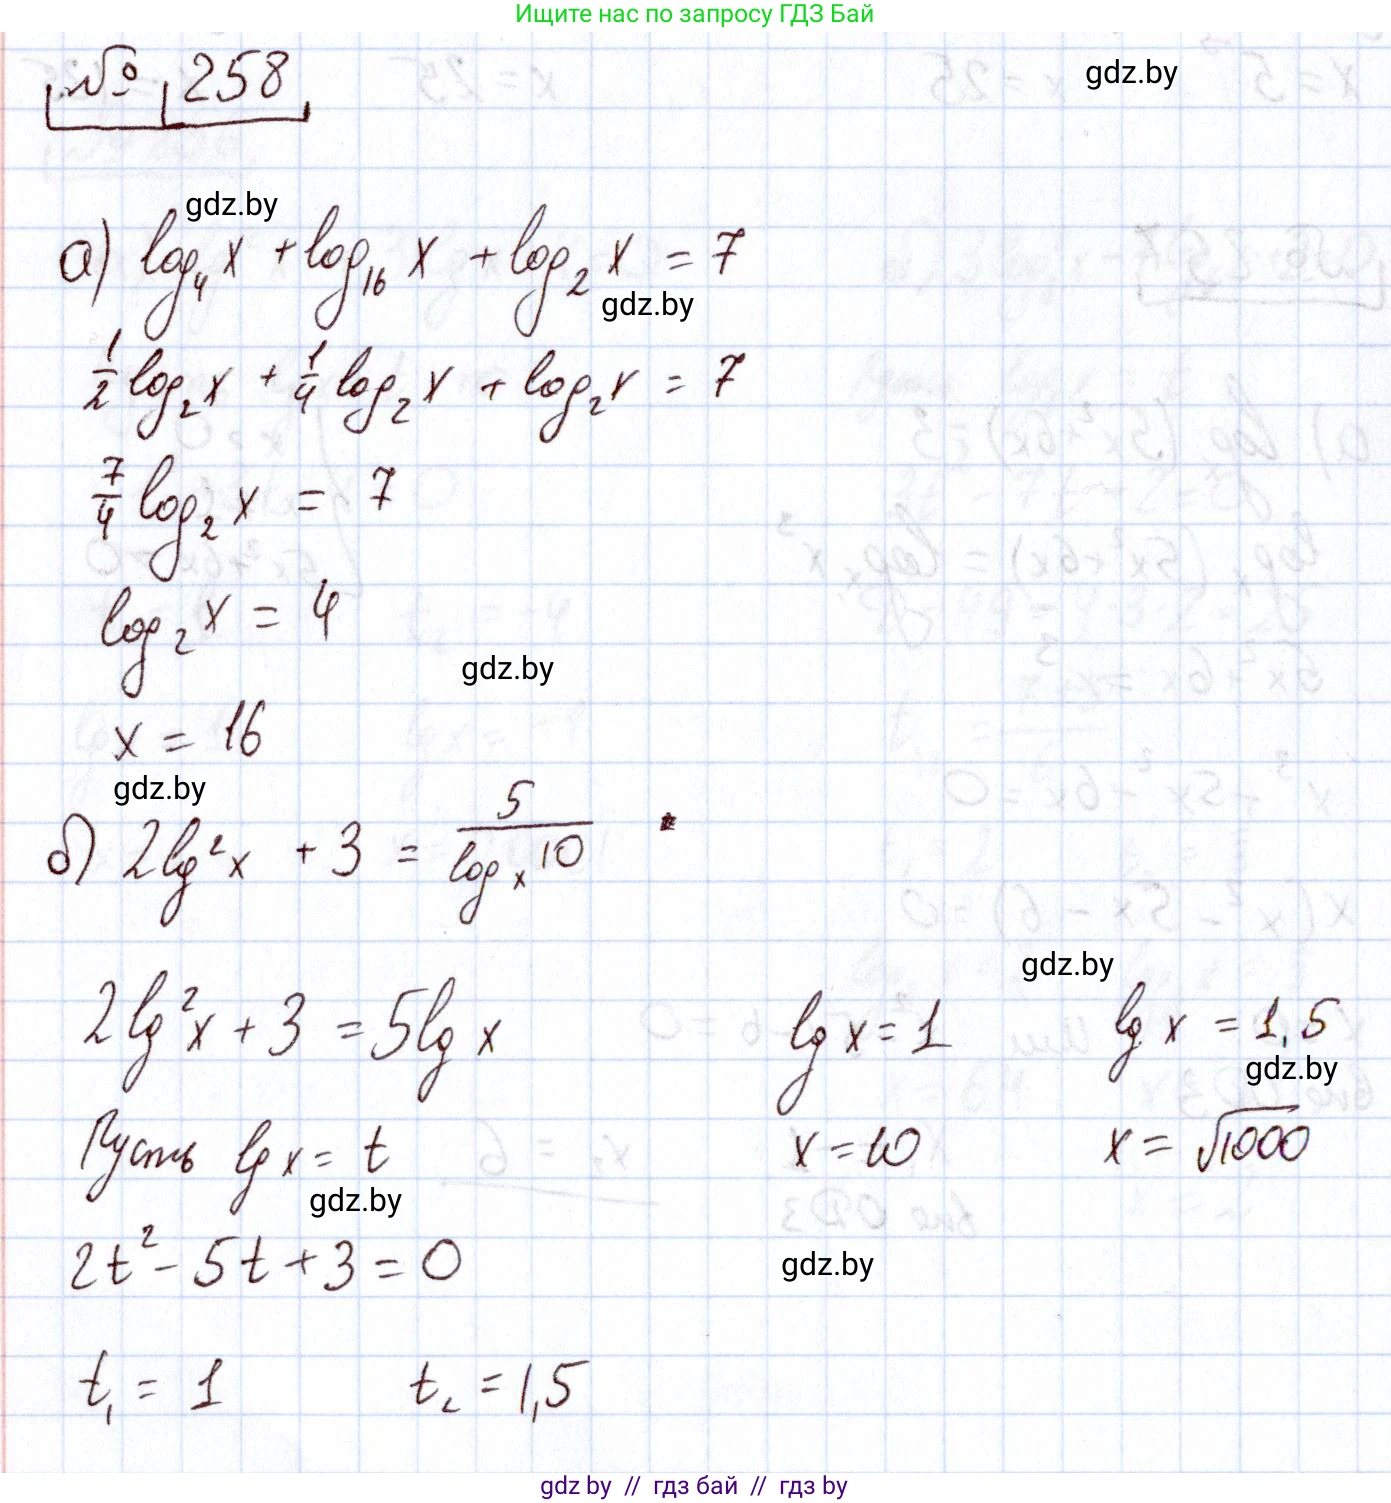 Ищите нас по запросу ГДЗ Бай
№ 258
gdz.by
gdz.by
а) log₄x + log₁₆x + log₂x = 7
gdz.by
1/2 log₂x + 1/4 log₂x + log₂x = 7
7/4 log₂x = 7
log₂x = 4
gdz.by
x = 16
gdz.by
б) 2lg²x + 3 = 5/logₓ10
gdz.by
2lg²x + 3 = 5lg x
lg x = 1
lg x = 1,5
gdz.by
Пусть lg x = t
x = 10
x = √1000
gdz.by
2t² - 5t + 3 = 0
gdz.by
t₁ = 1
t₂ = 1,5
gdz.by // гдз бай // гдз by